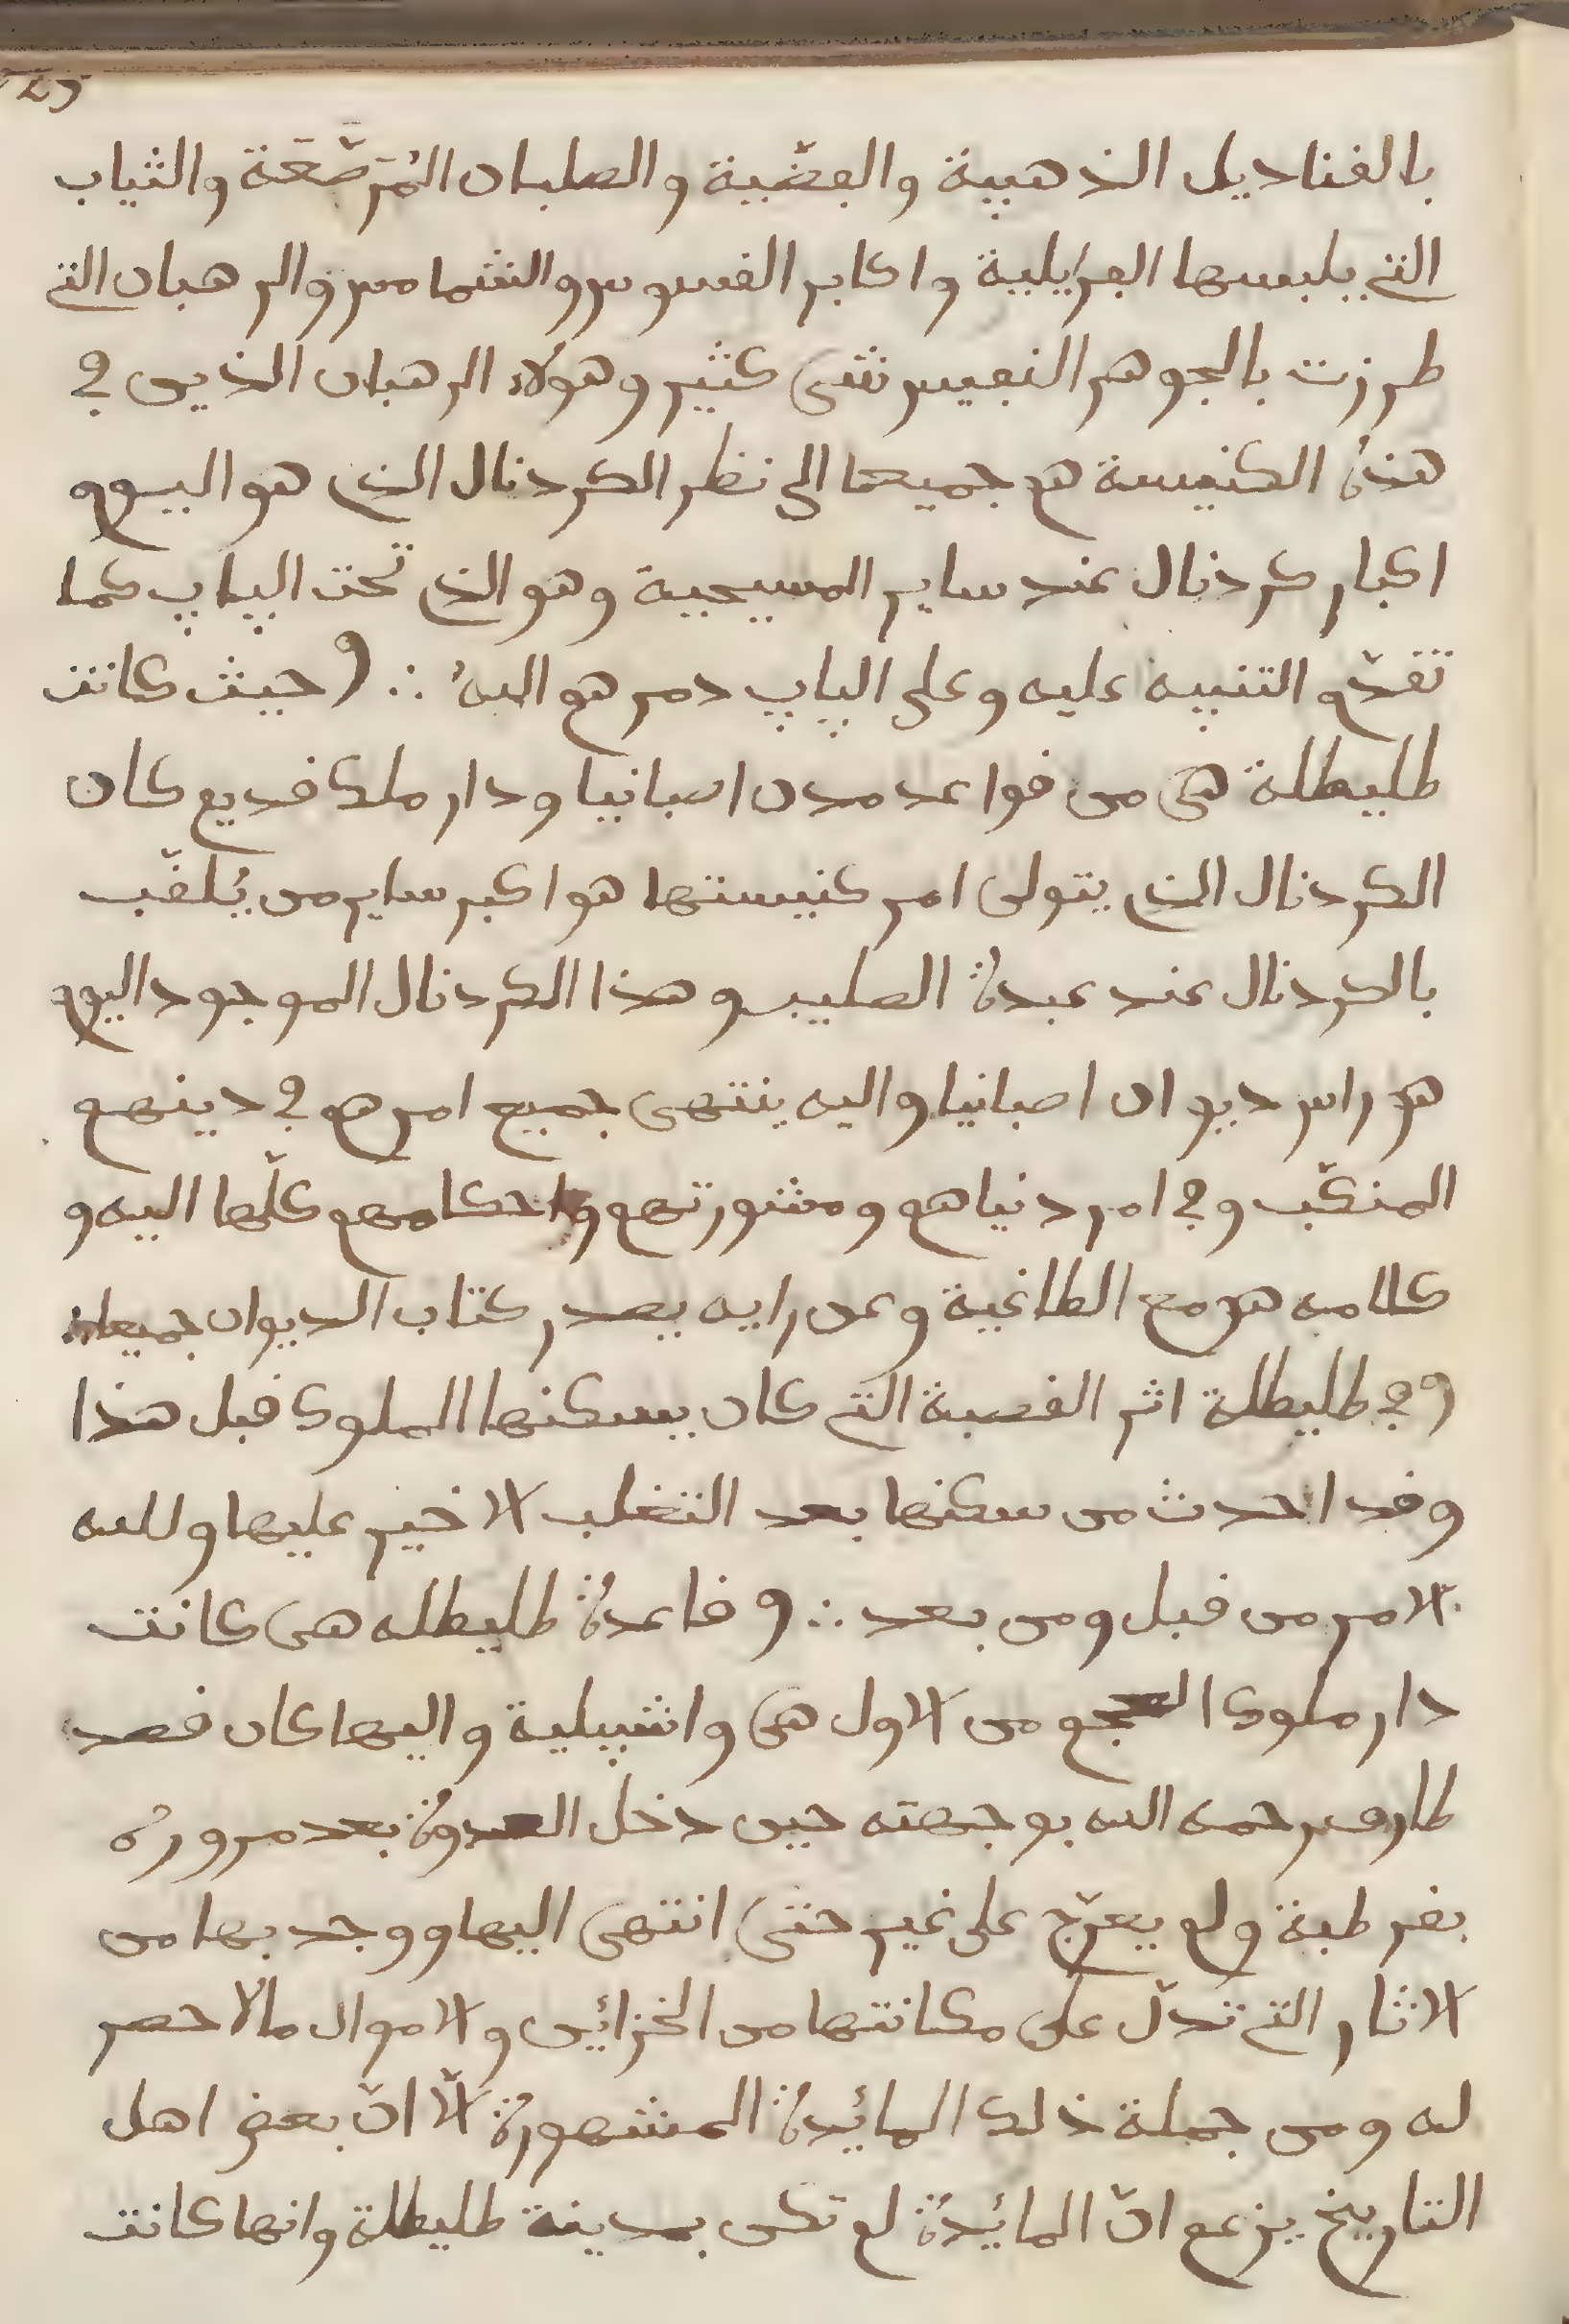 بالقناديل الذهبية والفضّية والصلبان المُرَصَّعَة والثياب
التي يلبسها الفرايلية واكابر القسوس والشمامس والرهبان التي
طرزت بالجوهر النفيس شيئ كثير وهولاء الرهبان الذين في
هذه الكنيسة هم جميعا الى نظر الكردنال الذي هو اليوم
اكبار كردنال عند ساير المسيحية وهو الذي تحت الپاپ كما
تقدّم التنبيه عليه وعلى الپاپ دمرهم الله ∴ وحيث كانت
طليطلة هي من قواعد مدن اصبانيا ودار ملك قديم كان
الكردنال الذي يتولى امر كنيستها هو اكبر ساير من يُلقّب
بالكردنال عند عبدة الصليب وهذا الكردنال الموجود اليوم
هو راس ديوان اصبانيا واليه ينتهى جميع امرهم في دينهم
المنكّب وفي امر دنياهم ومشورتهم واحكامهم كلّها اليه و
كلامه هو مع الطاغية وعن رايه يصدر كتاب الديوان جميعا ∴
وفي طليطلة اثر القصبة التي كان يسكنها الملوك قبل هذا
وقد احدث من سكنها بعد التغلب الاخير عليها ولله
الامر من قبل ومن بعد ∴ وقاعدة طليطله هى كانت
دار ملوك العجم من الاول هي واشبيلية واليها كان قصد
طارق رحمه الله بوجهته حين دخل العدوة بعد مروره
بقرطبة ولم يعرّج على غير حتى انتهى اليها ووجد بها من
الاثار التي تدلّ على مكانتها من الخزائين والاموال مالا حصر
له ومن جملة ذلك المائيدة المشهورة الّا انّ بعض اهل
التاريخ يزعم انّ المائيدة لم تكن بمدينة طليطلة وانها كانت